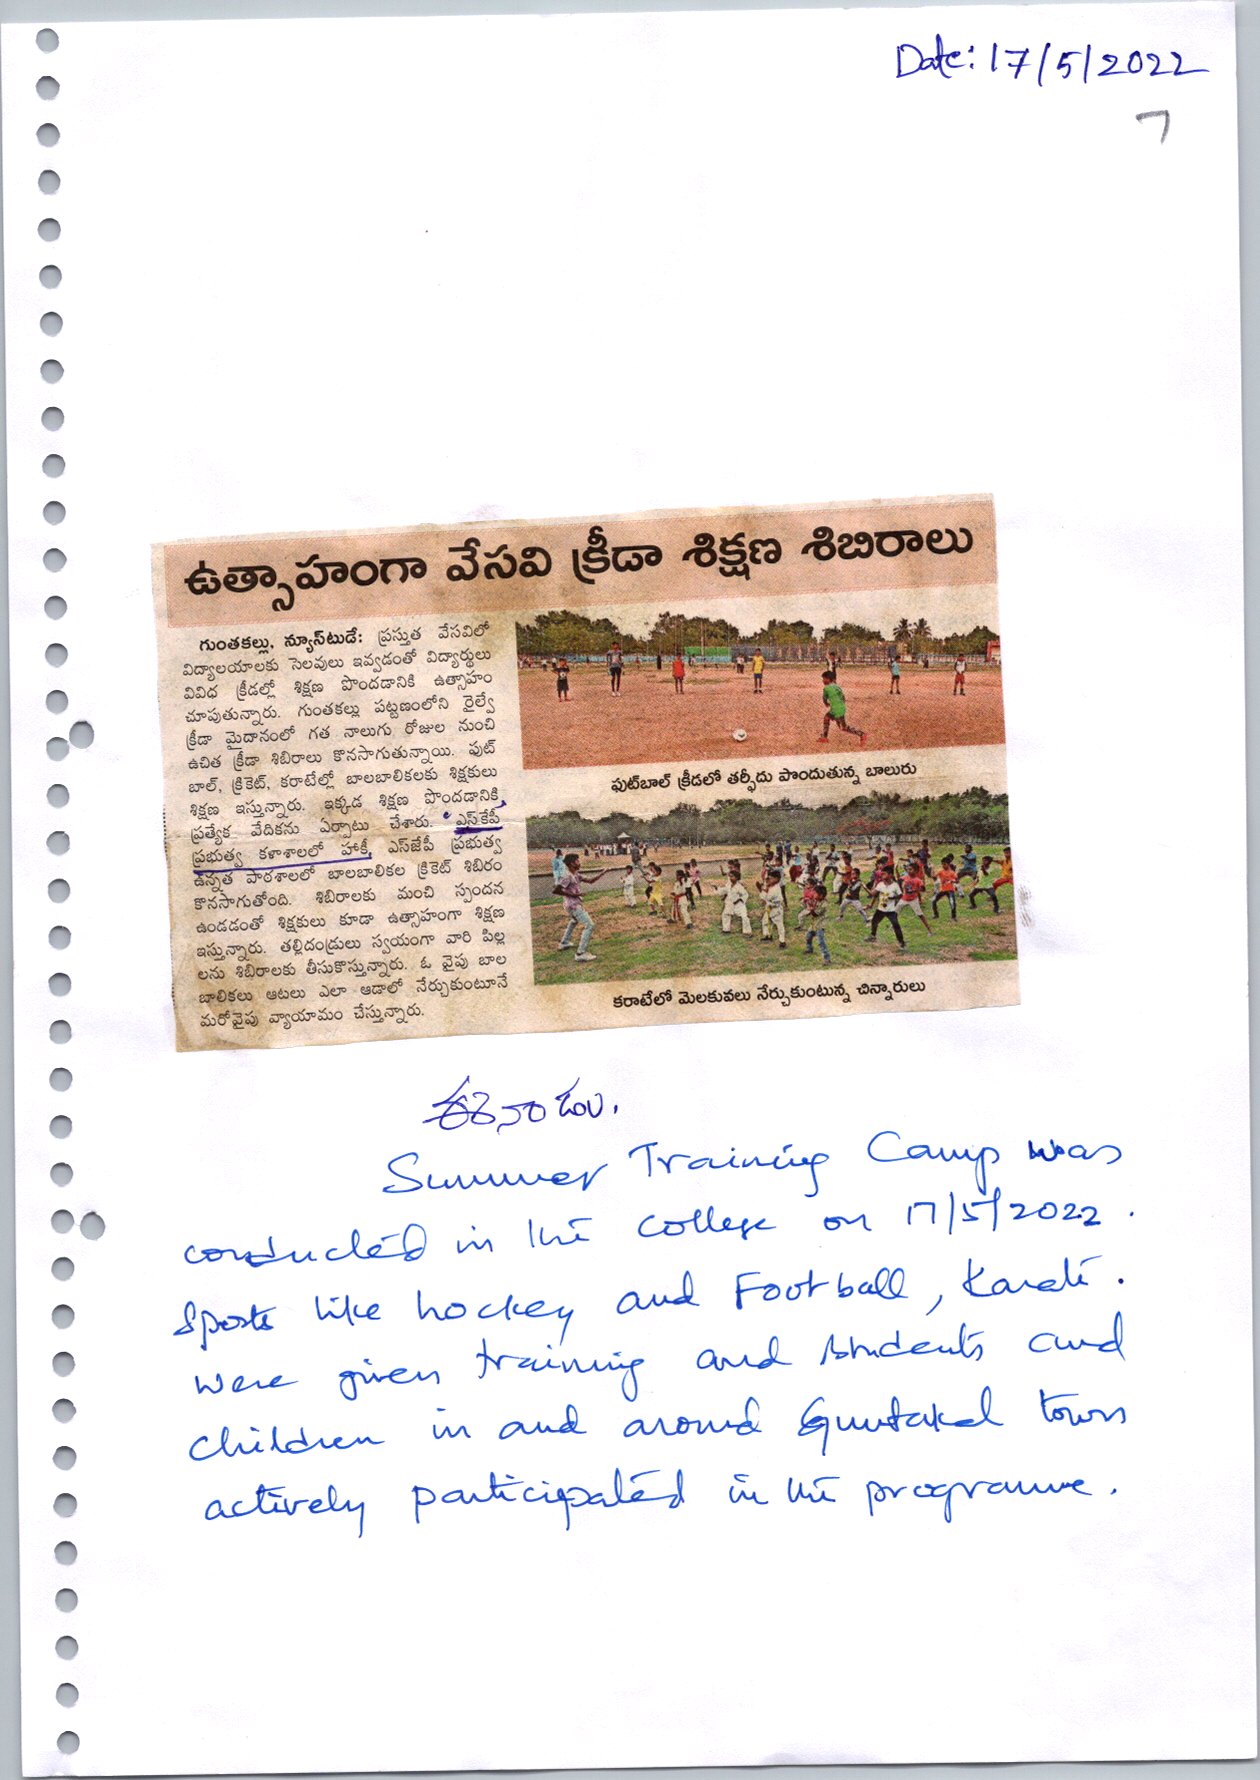 Date: 17/5/2022
7
ఉత్సాహంగా వేసవి క్రీడా శిక్షణ శిబిరాలు
గుంతకల్లు, న్యూస్‌టుడే: ప్రస్తుత వేసవిలో
విద్యాలయాలకు సెలవులు ఇవ్వడంతో విద్యార్థులు
వివిధ క్రీడల్లో శిక్షణ పొందడానికి ఉత్సాహం
చూపుతున్నారు. గుంతకల్లు పట్టణంలోని రైల్వే
క్రీడా మైదానంలో గత నాలుగు రోజుల నుంచి
ఉచిత క్రీడా శిబిరాలు కొనసాగుతున్నాయి. ఫుట్
బాల్, క్రికెట్, కరాటేల్లో బాలబాలికలకు శిక్షకులు
శిక్షణ ఇస్తున్నారు. ఇక్కడ శిక్షణ పొందడానికి
ప్రత్యేక వేదికను ఏర్పాటు చేశారు. ఎస్‌కేపీ
ప్రభుత్వ కళాశాలలో హాకీ, ఎస్‌జేపీ ప్రభుత్వ
ఉన్నత పాఠశాలలో బాలబాలికల క్రికెట్ శిబిరం
కొనసాగుతోంది. శిబిరాలకు మంచి స్పందన
ఉండడంతో శిక్షకులు కూడా ఉత్సాహంగా శిక్షణ
ఇస్తున్నారు. తల్లిదండ్రులు స్వయంగా వారి పిల్ల
లను శిబిరాలకు తీసుకొస్తున్నారు. ఓ వైపు బాల
బాలికలు ఆటలు ఎలా ఆడాలో నేర్చుకుంటూనే
మరోవైపు వ్యాయామం చేస్తున్నారు.
ఫుట్‌బాల్ క్రీడలో తర్ఫీదు పొందుతున్న బాలురు
కరాటేలో మెలకువలు నేర్చుకుంటున్న చిన్నారులు
ఈనాడు.
Summer Training Camp was
conducted in the college on 17/5/2022.
Sports like hockey and Football, Karate.
were given training and students and
children in and around Guntakal town
actively participated in the programme.